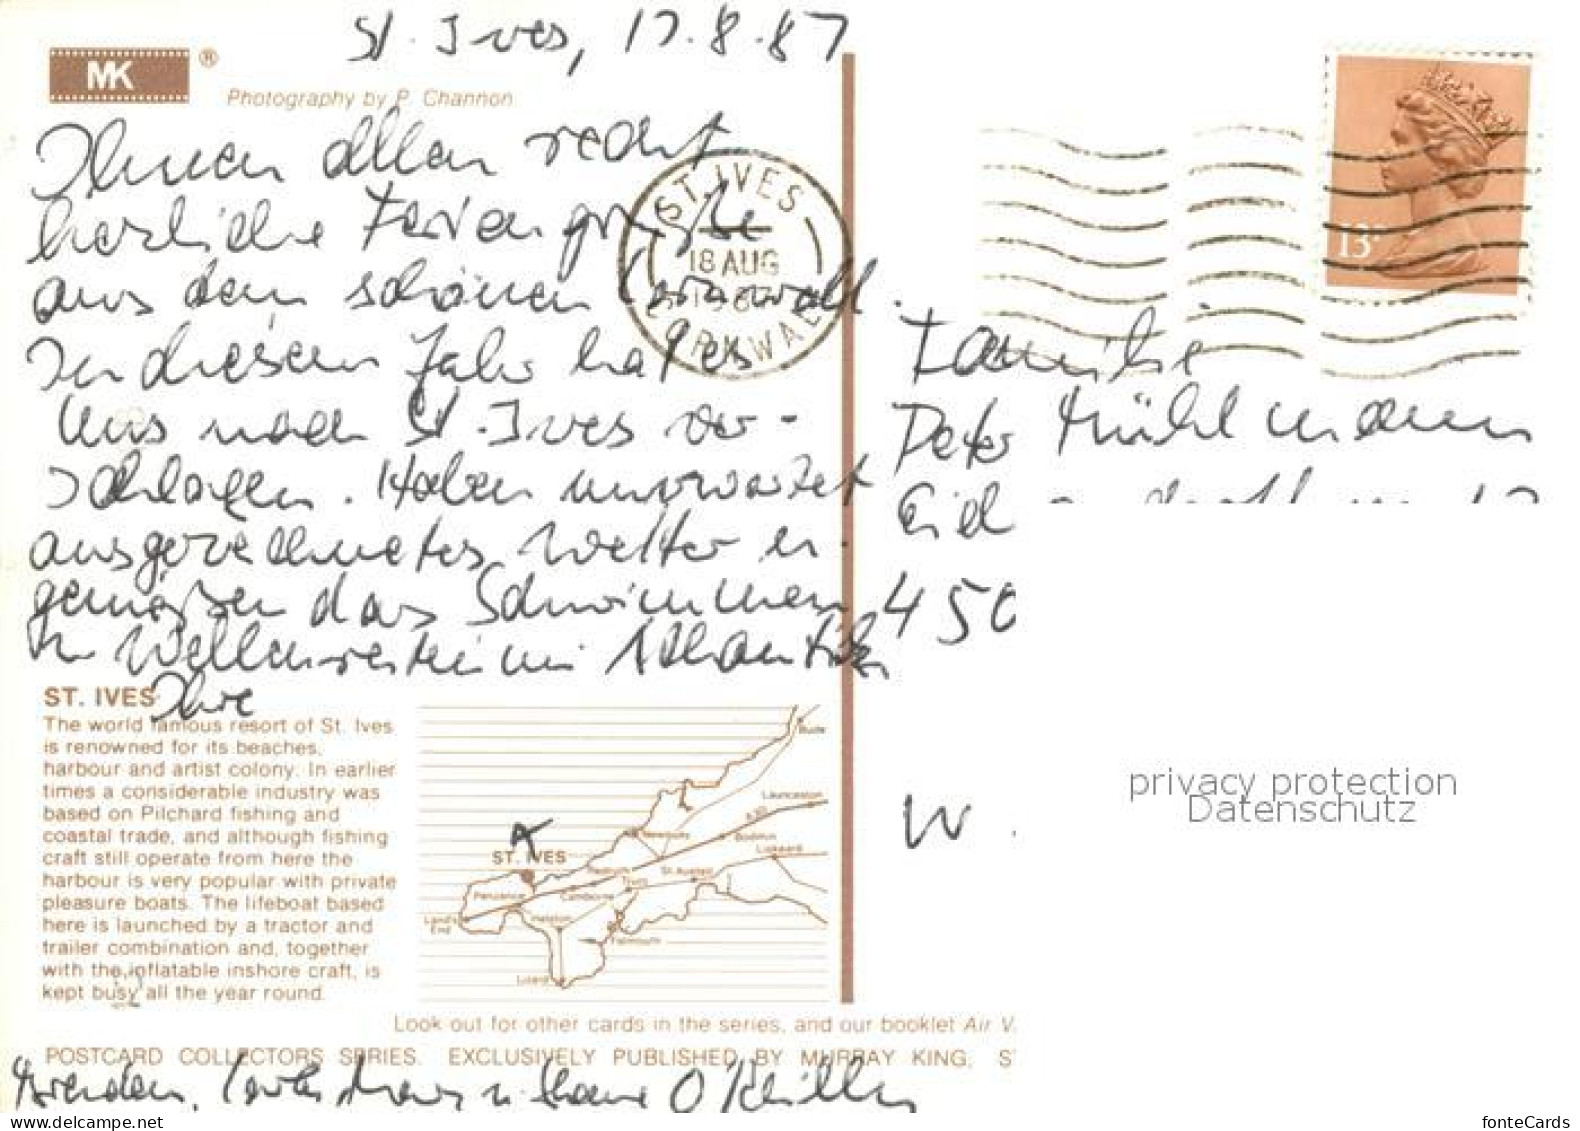 St. Ives, 17.8.87
MK ®
Photography by P. Channon
Ihnen allen recht
herzliche Feriengrüße
aus dem schönen Cornwall.
In diesem Jahr hat es
uns nach St. Ives ver-
schlagen. Haben unerwartet
ausgezeichnetes Wetter u.
genießen das Schwimmen
u. Wellenreiten im Atlantik
Ihre
ST. IVES
18 AUG
CORNWALL
13P
Familie
Peter Mühlmann
450
W
ST. IVES
The world famous resort of St. Ives
is renowned for its beaches,
harbour and artist colony. In earlier
times a considerable industry was
based on Pilchard fishing and
coastal trade, and although fishing
craft still operate from here the
harbour is very popular with private
pleasure boats. The lifeboat based
here is launched by a tractor and
trailer combination and, together
with the inflatable inshore craft, is
kept busy all the year round.
Bude
Launceston
A30
Newquay
Bodmin
Liskeard
ST. IVES
Redruth
Truro
St. Austell
Penzance
Camborne
Land's
End
Helston
Falmouth
Lizard
privacy protection
Datenschutz
Look out for other cards in the series, and our booklet Air V
POSTCARD COLLECTORS SERIES. EXCLUSIVELY PUBLISHED BY MURRAY KING, S
Brendan, u. Shane O'Reilly
fonteCards